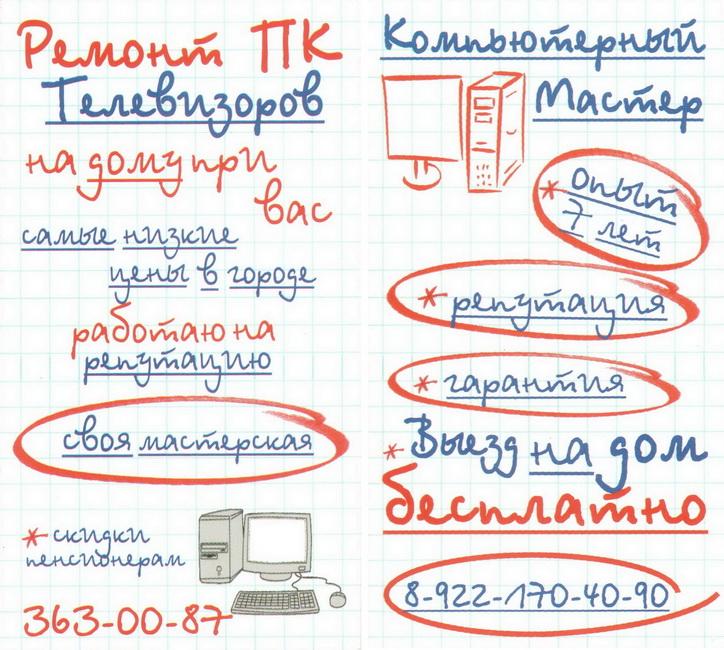 Ремонт ПК
Телевизоров
на дому при
вас
самые низкие
цены в городе
работаю на
репутацию
своя мастерская
* скидки
пенсионерам
363-00-87
Компьютерный
Мастер
* опыт
7 лет
* репутация
* гарантия
* Выезд на дом
бесплатно
8-922-170-40-90